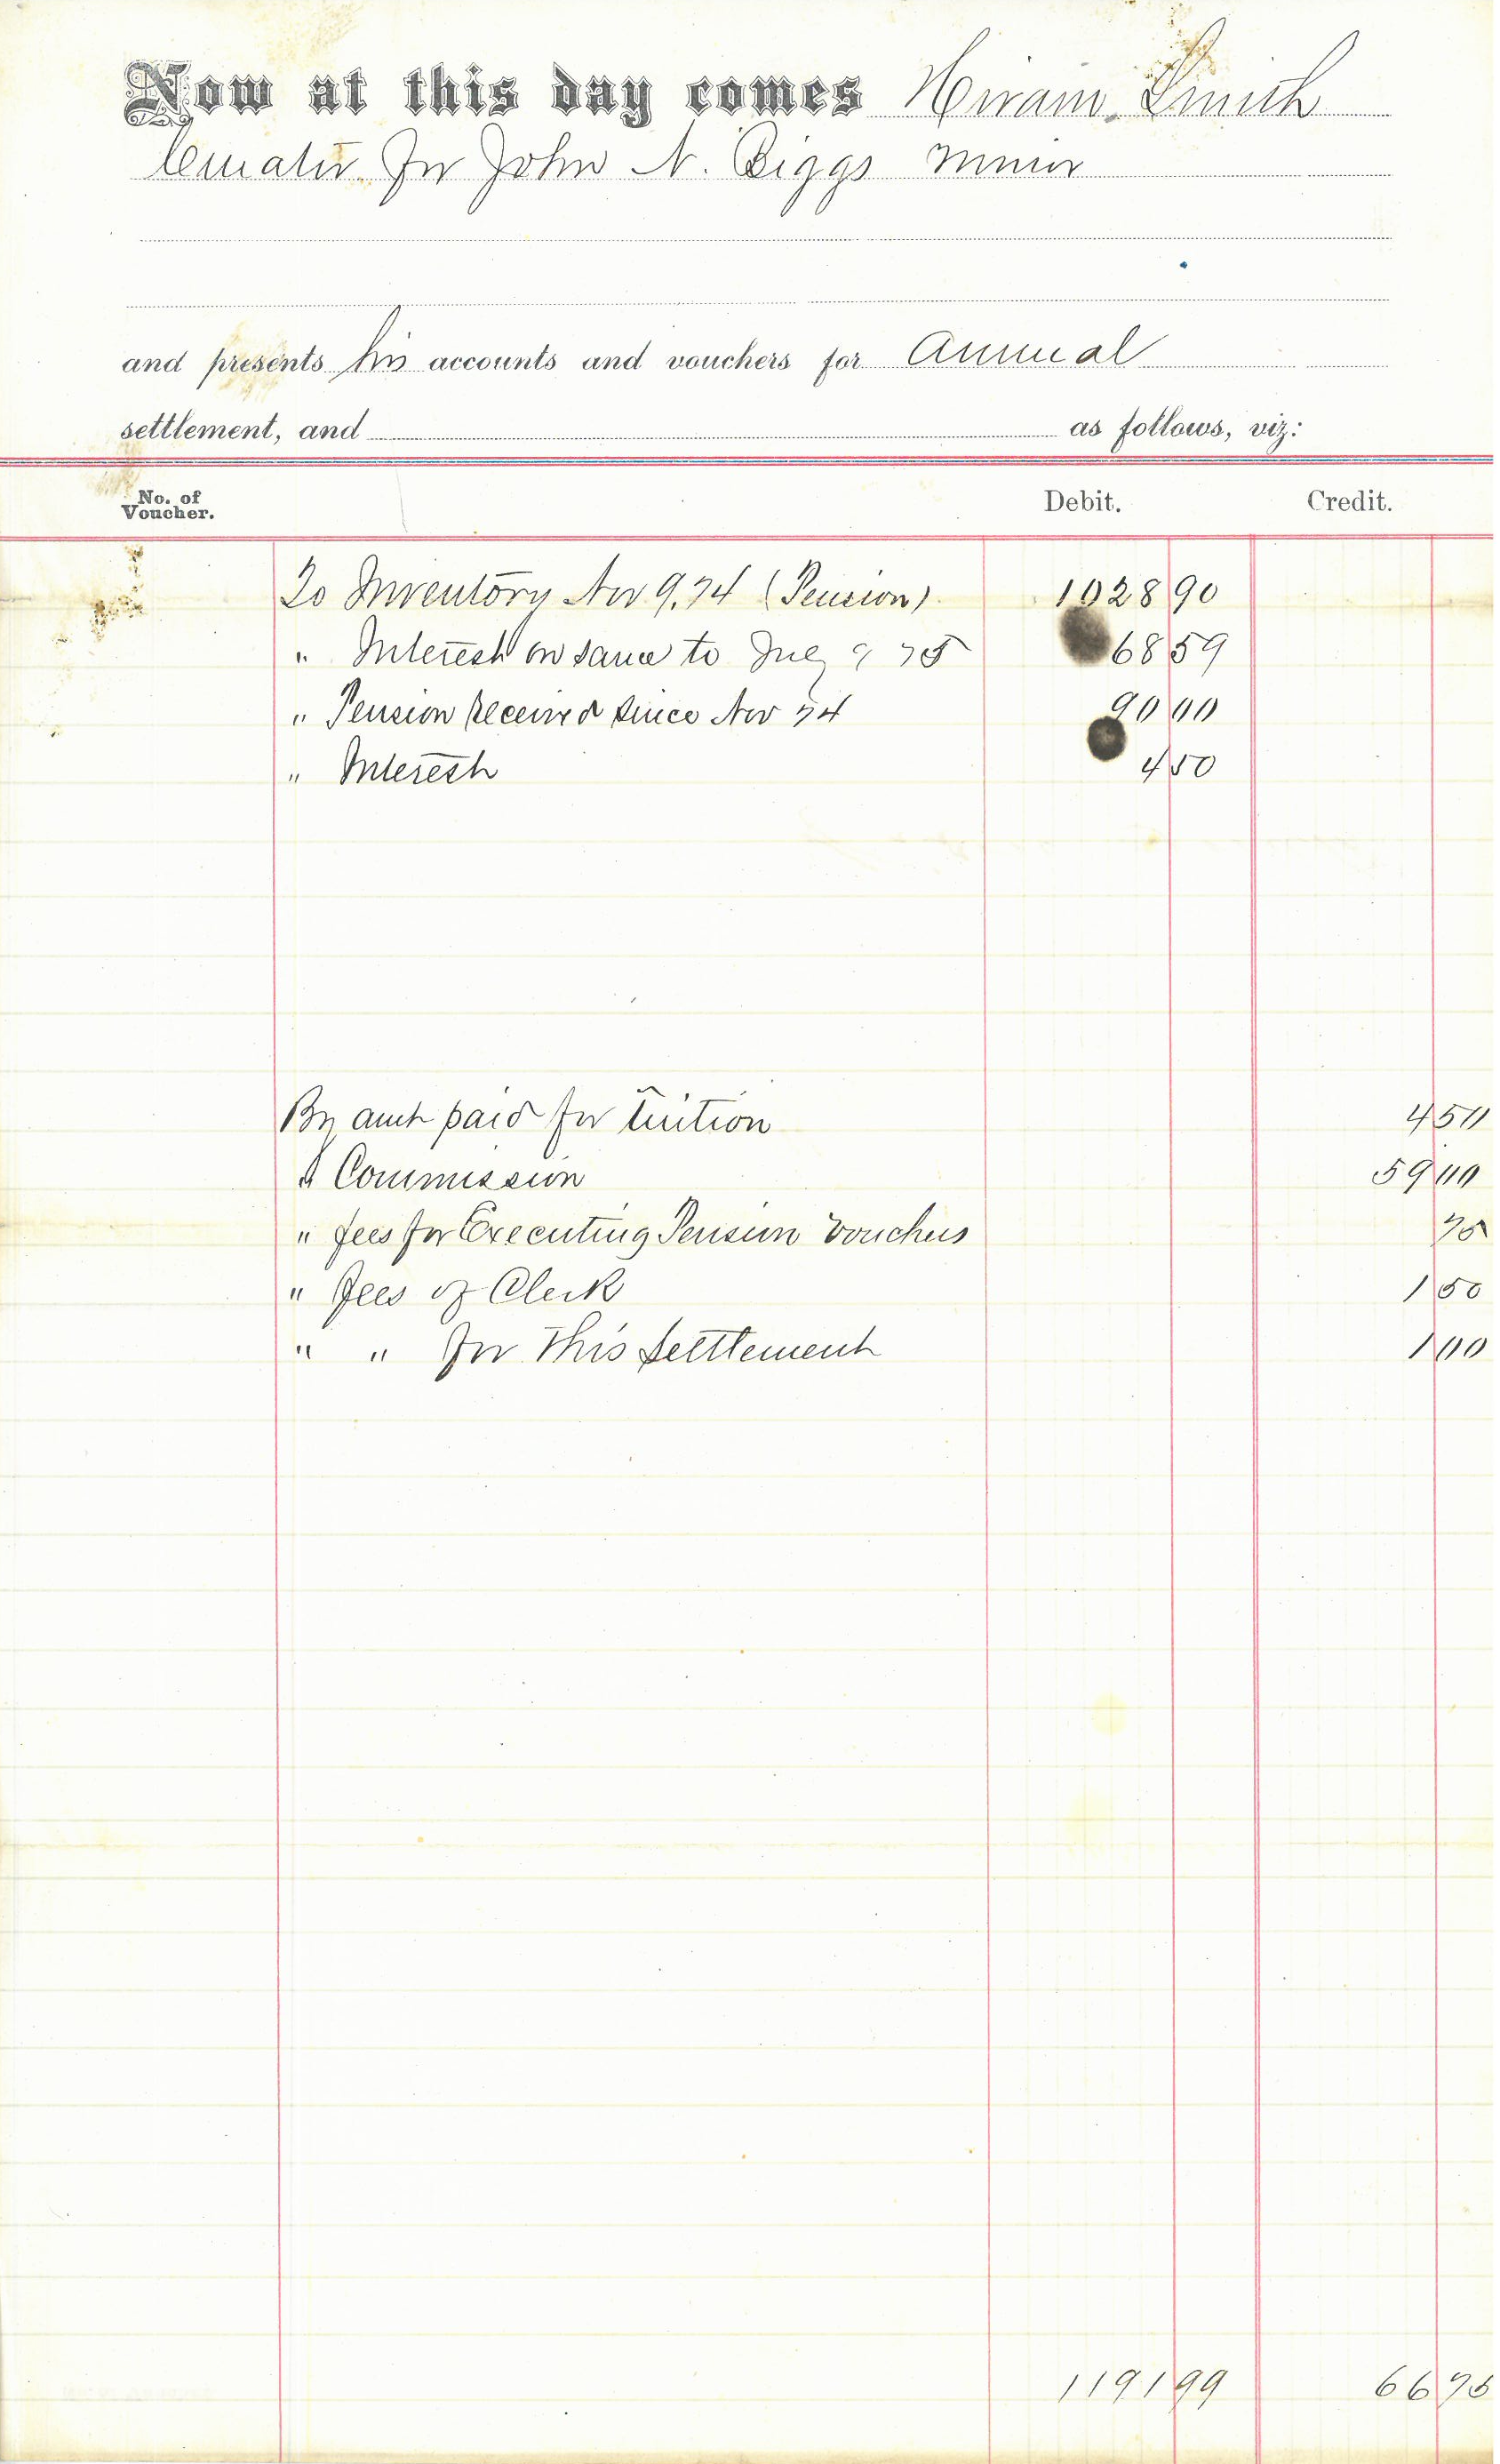 Now at this day comes Hiram Smith
Curator for John N. Biggs minor
and presents his accounts and vouchers for Annual
settlement, and as follows, viz:
No. of Voucher. Debit. Credit.
To Inventory Nov 9, 74 (Pension) 1028 90
" Interest on same to 9 75 68 59
" Pension Received Since Nov 74 90 00
" Interest 4 50
By amt paid for tuition 4 50
" Commission 59 00
" fees for Executing Pension Vouchers 75
" Fees of Clerk 1 50
" " for this Settlement 1 00
1191 99 66 75